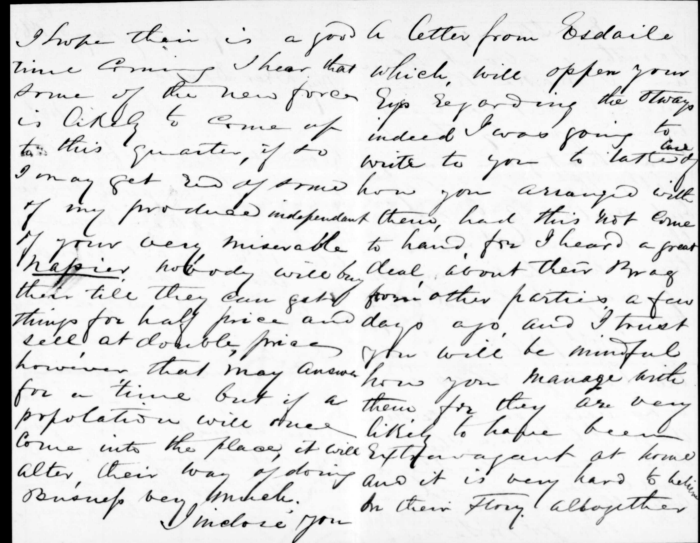 I hope their is a good
time coming I hear that
some of the new force
is likely to come up
to this quarter, if so
I may get rid of some
of my produce independant
of your very miserable
Napier nobody will buy
their till they can get
things for half price and
sell at double price
however that may answer
for a time but if a
popolation will once
come into the place, it will
alter, their way of doing
Busness very much.
I inclose you
A letter from Esdaile
which, will oppen your
Eys Regarding the
indeed I was going to
write to you to take care
how you arranged with
them, had this not come
to hand, for I heard a great
deal, about their Brag
from other parties, a few
days ago, and I trust
you will be mindful
how you manage with
them for they are very
likely to have been
Extravagant at home
and it is very hard to believe
in their Story altogether